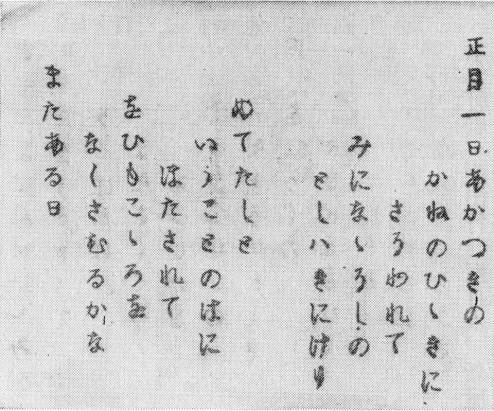 正月一日あかつきの
かねのひゝきに
さそわれて
みになゝそしの
としハきにけり
めてたしと
いふことのはに
ほたされて
をひもこゝろを
なくさむるかな
またある日